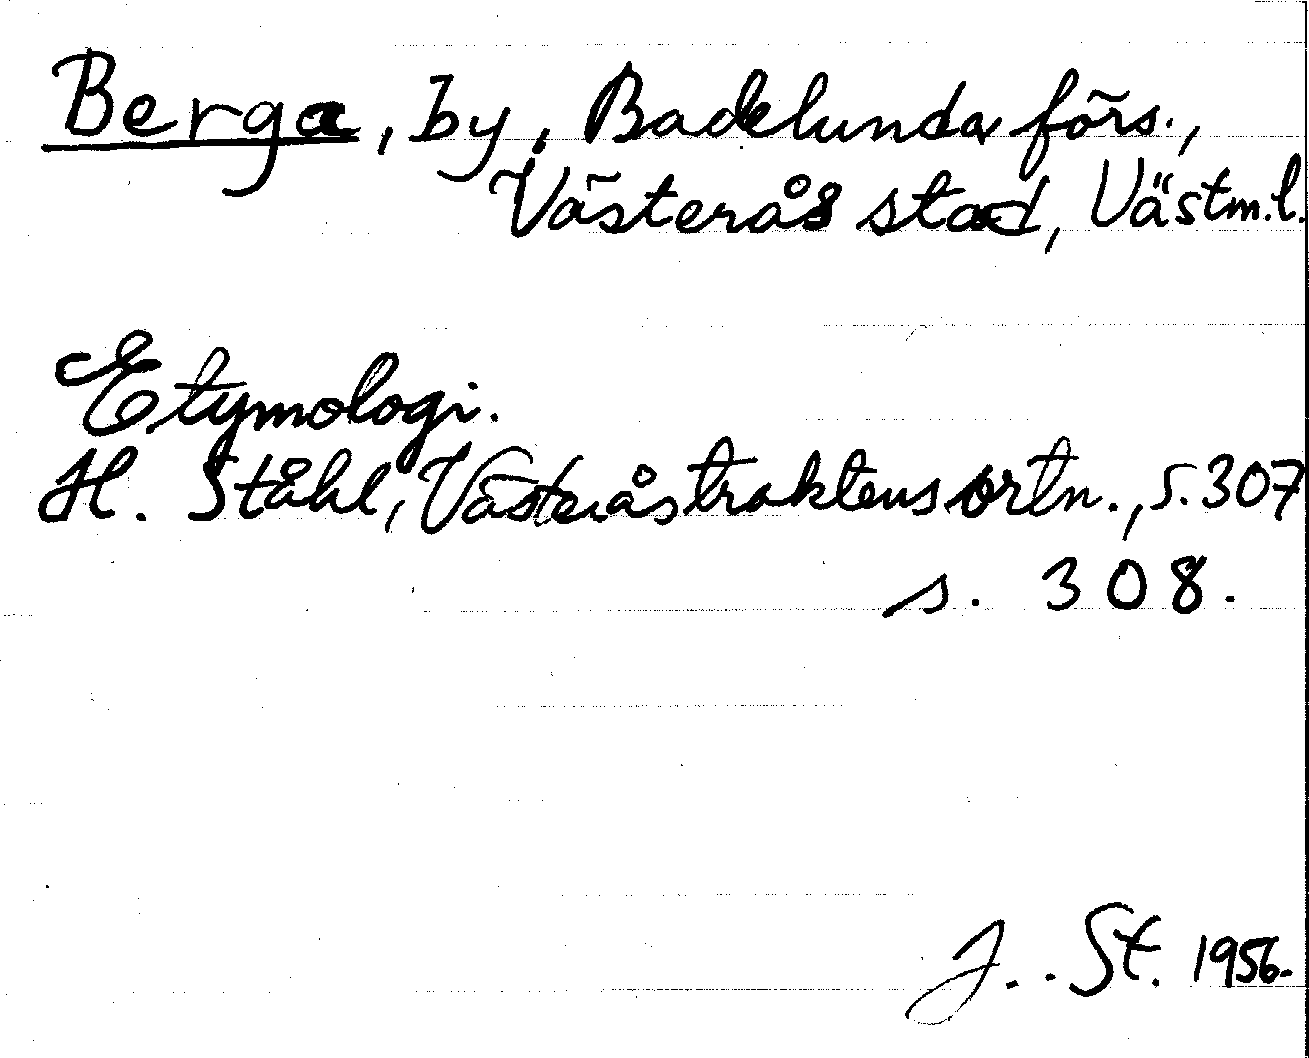 Berga, by, Badelundaförs.,
Västerås stad, Västm.l.
Etymologi.
H. Ståhl, Västeråstraktens ortn., s. 307
s. 308.
J. . St. 1956.